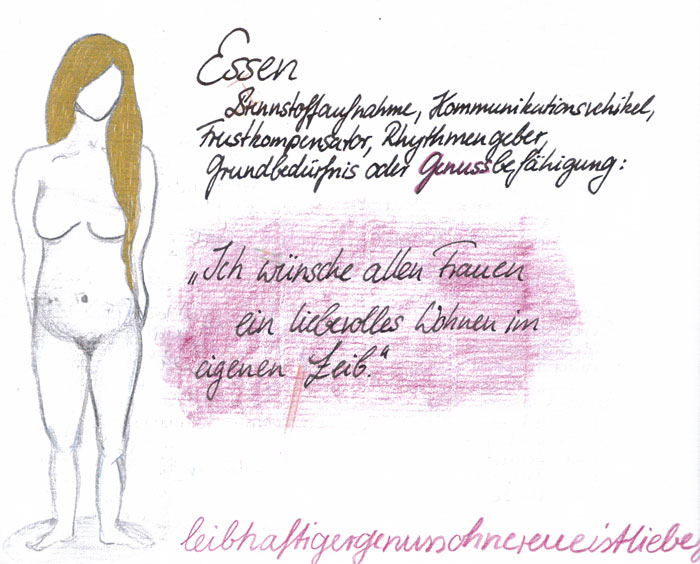 Essen
Brennstoffaufnahme, Kommunikationsvehikel,
Frustkompensator, Rhythmengeber,
Grundbedürfnis oder Genussbefähigung:
„Ich wünsche allen Frauen
ein liebevolles Wohnen im
eigenen Leib.“
leibhaftigergenussohnereueistliebe